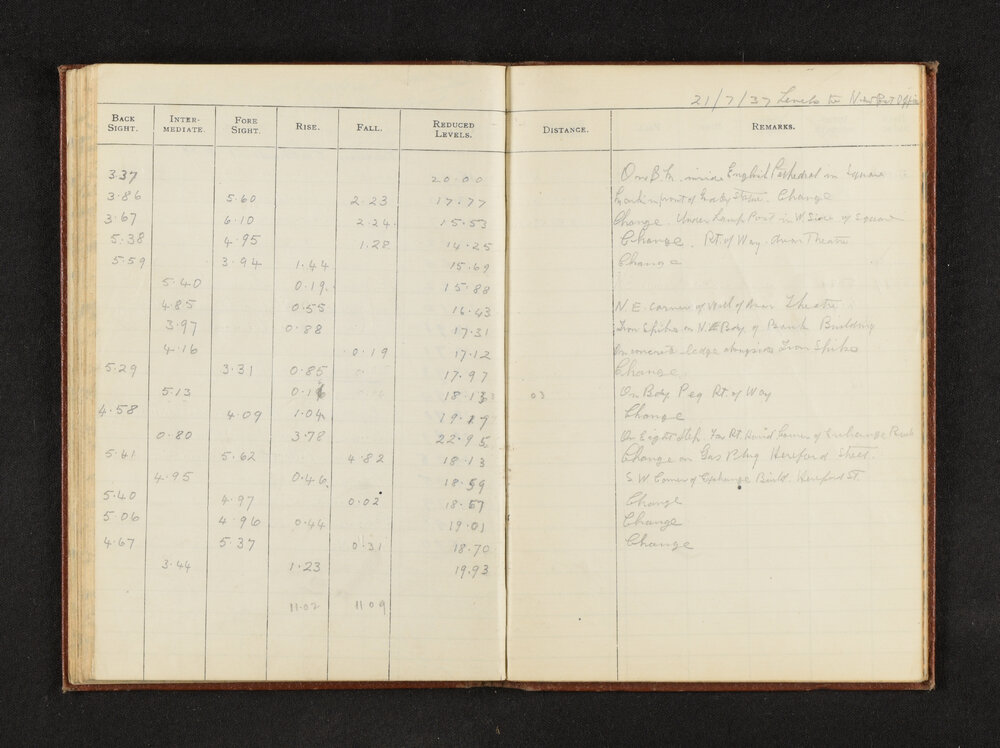 21/7/37 Levels to New Post Office
BACK SIGHT. INTER-MEDIATE. FORE SIGHT. RISE. FALL. REDUCED LEVELS. DISTANCE. REMARKS.
3.37 20.00 On B.M. inside English Cathedral in Square
3.86 5.60 2.23 17.77 in front of Change
3.67 6.10 2.24. 15.53 Change. Under Lamp Post in W. Side of Square
5.38 4.95 1.28 14.25 Change. Rt. of Way. Avon Theatre
5.59 3.94 1.44 15.69 Change
5.40 0.19. 15.88
4.85 0.55 16.43 N.E. Corner of Wall of Avon Theatre
3.97 0.88 17.31 Iron Spike on N.E Bdy. of Bank Building
4.16 0.19 17.12 On concrete ledge alongside Iron Spike
5.29 3.31 0.85 17.97 Change
5.13 0.16 18.13 03 On Bdy Peg Rt. of Way
4.58 4.09 1.04. 19.17 Change
0.80 3.78 22.95 On Eight Step Far Rt. Hand Corner of Exchange
5.61 5.62 4.82 18.13 Change on Gas Plug Hereford Street.
4.95 0.46. 18.59 S W Corner of Exchange Build. Hereford St.
5.40 4.97 0.02 18.57 Change
5.06 4.96 0.44 19.01 Change
4.67 5.37 0.31 18.70 Change
3.44 1.23 19.93
11.02 11.09